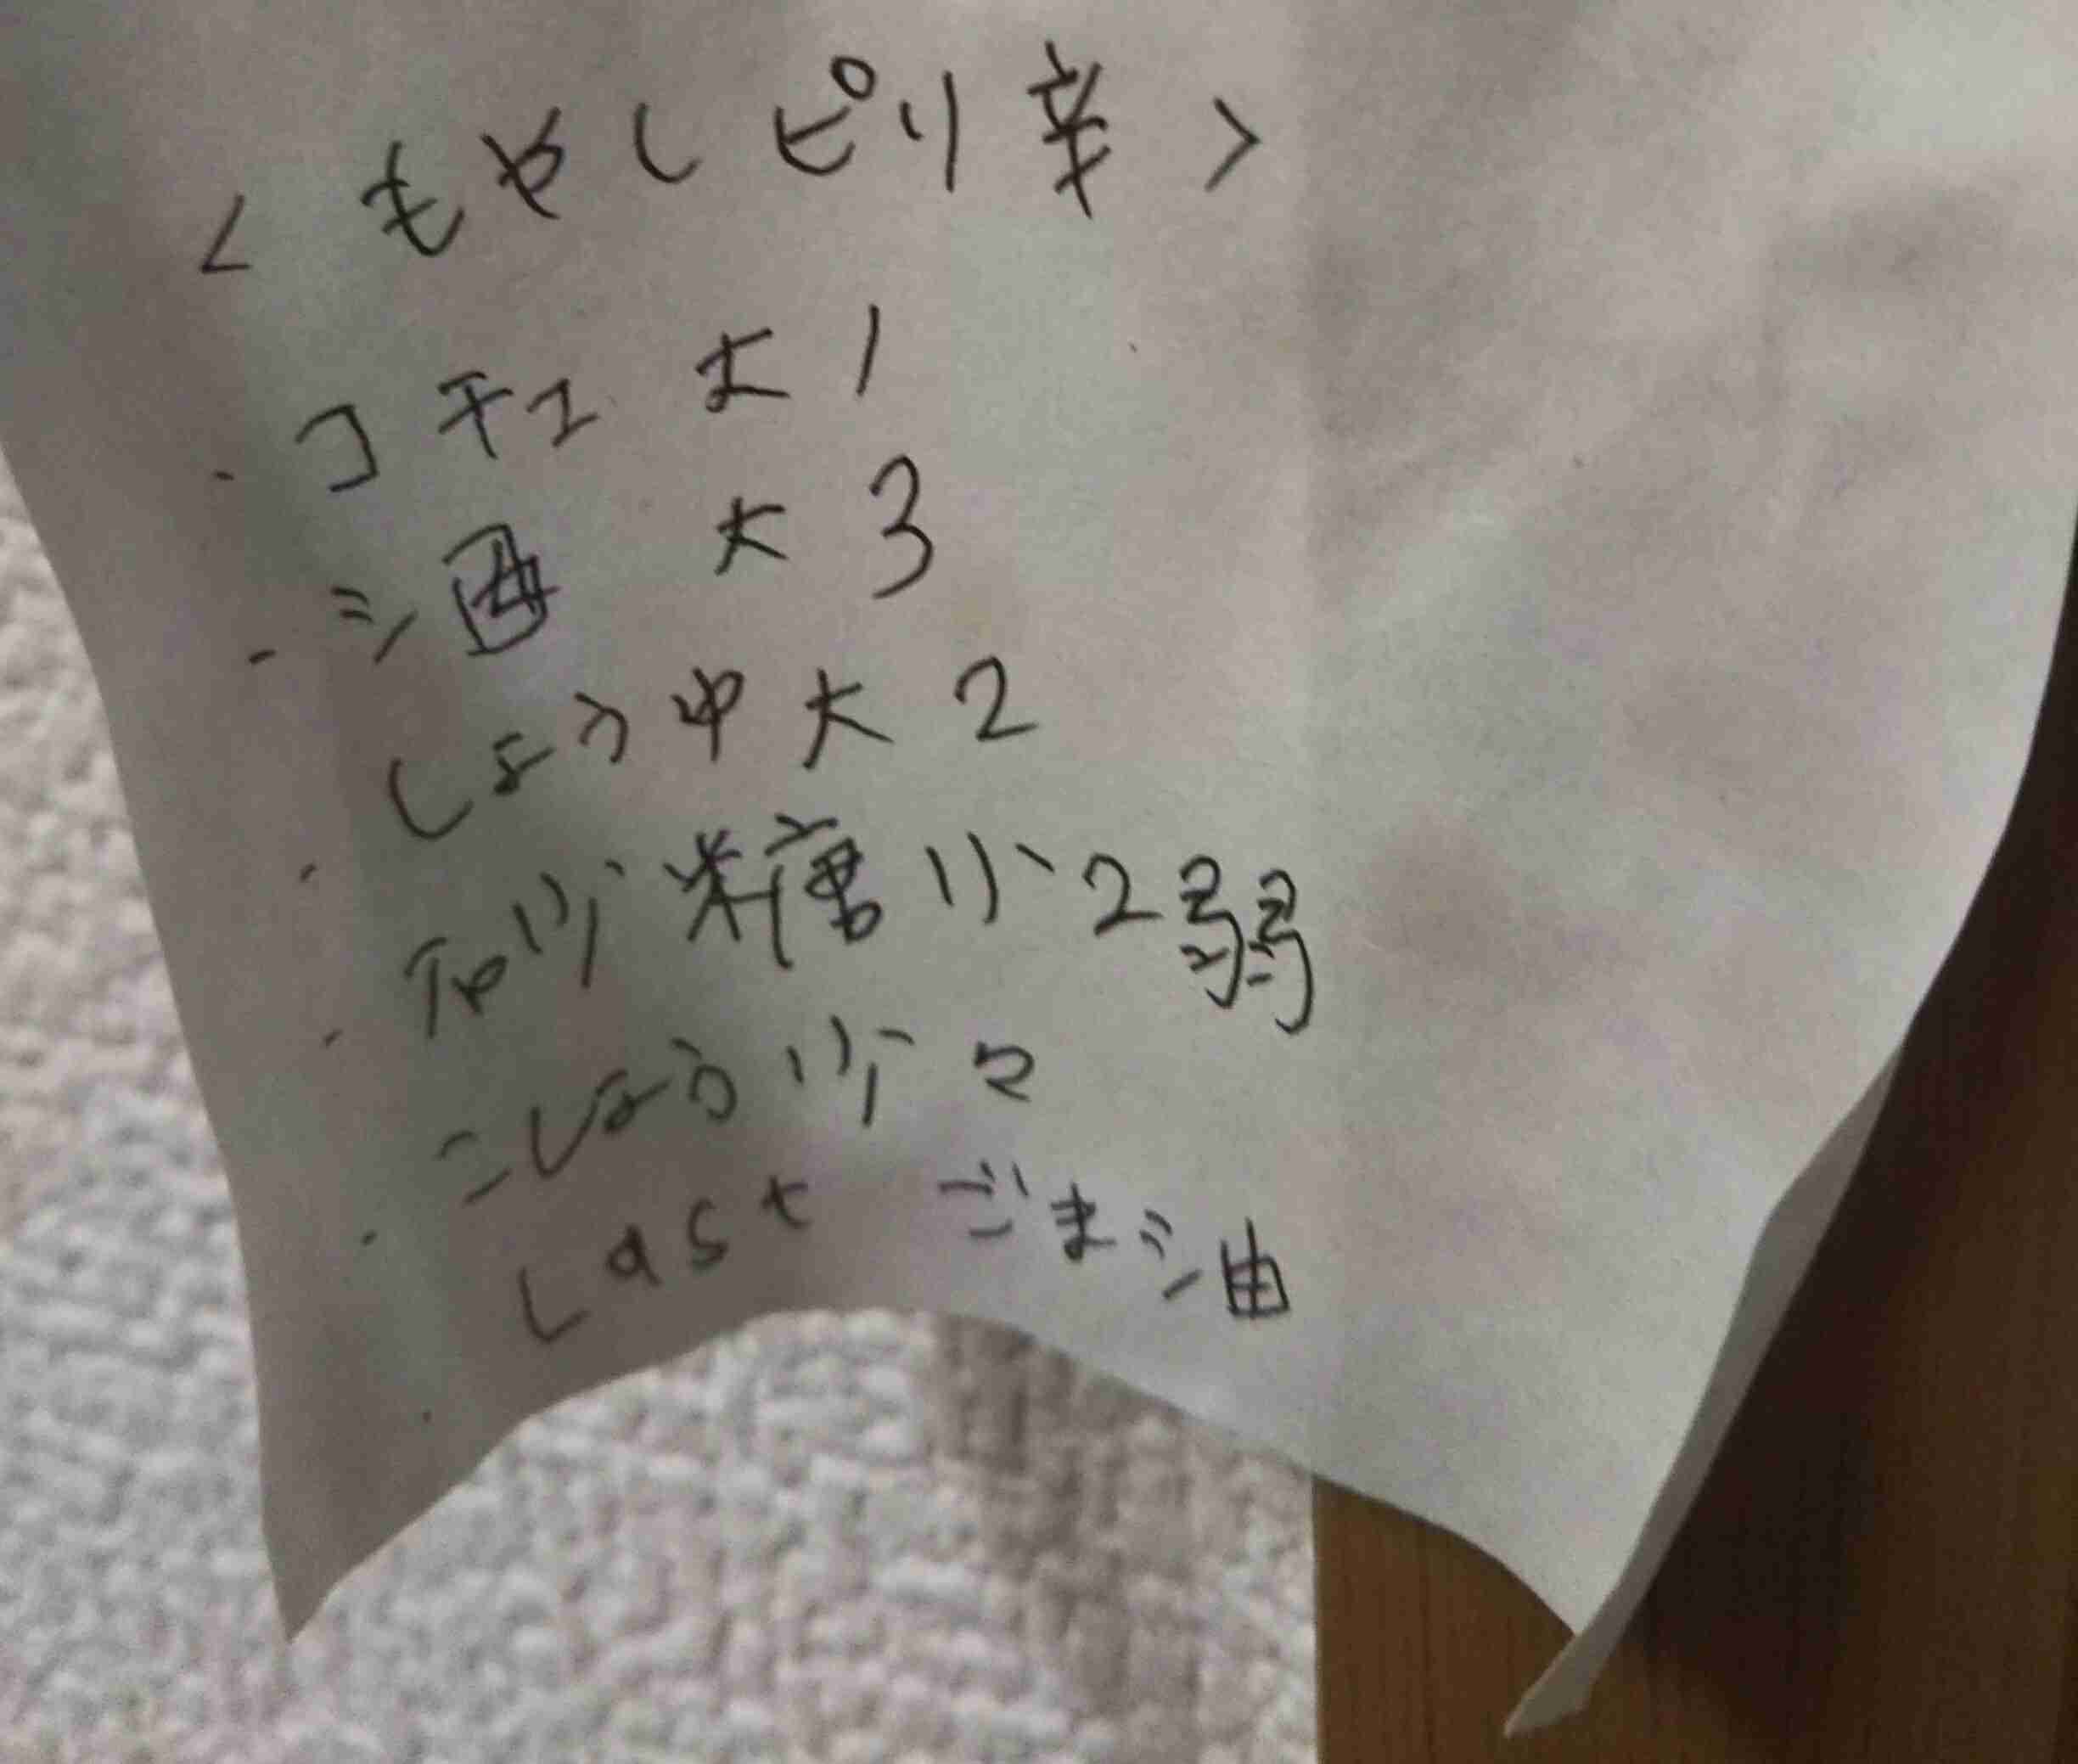 <もやしピリ辛>
・コチュ 大1
・酒 大3
しょう中大2
・砂糖小2弱
・こしょう少々
・Last ごま油